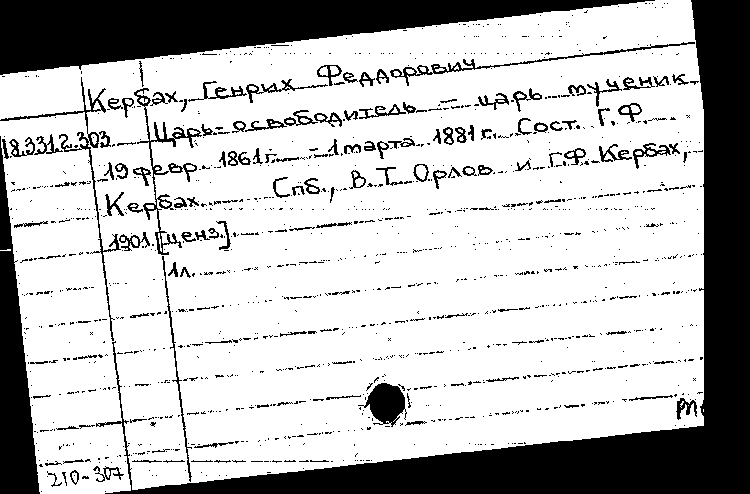 Кербах, Генрих Феддорович
18.331.2.303 Царь-освободитель – царь мученик
19 февр. 1861 г. – 1 марта 1881 г. Сост. Г.Ф.
Кербах. Спб., В.Т. Орлов и Г.Ф. Кербах,
1901. [ценз.].
1л.
210-307